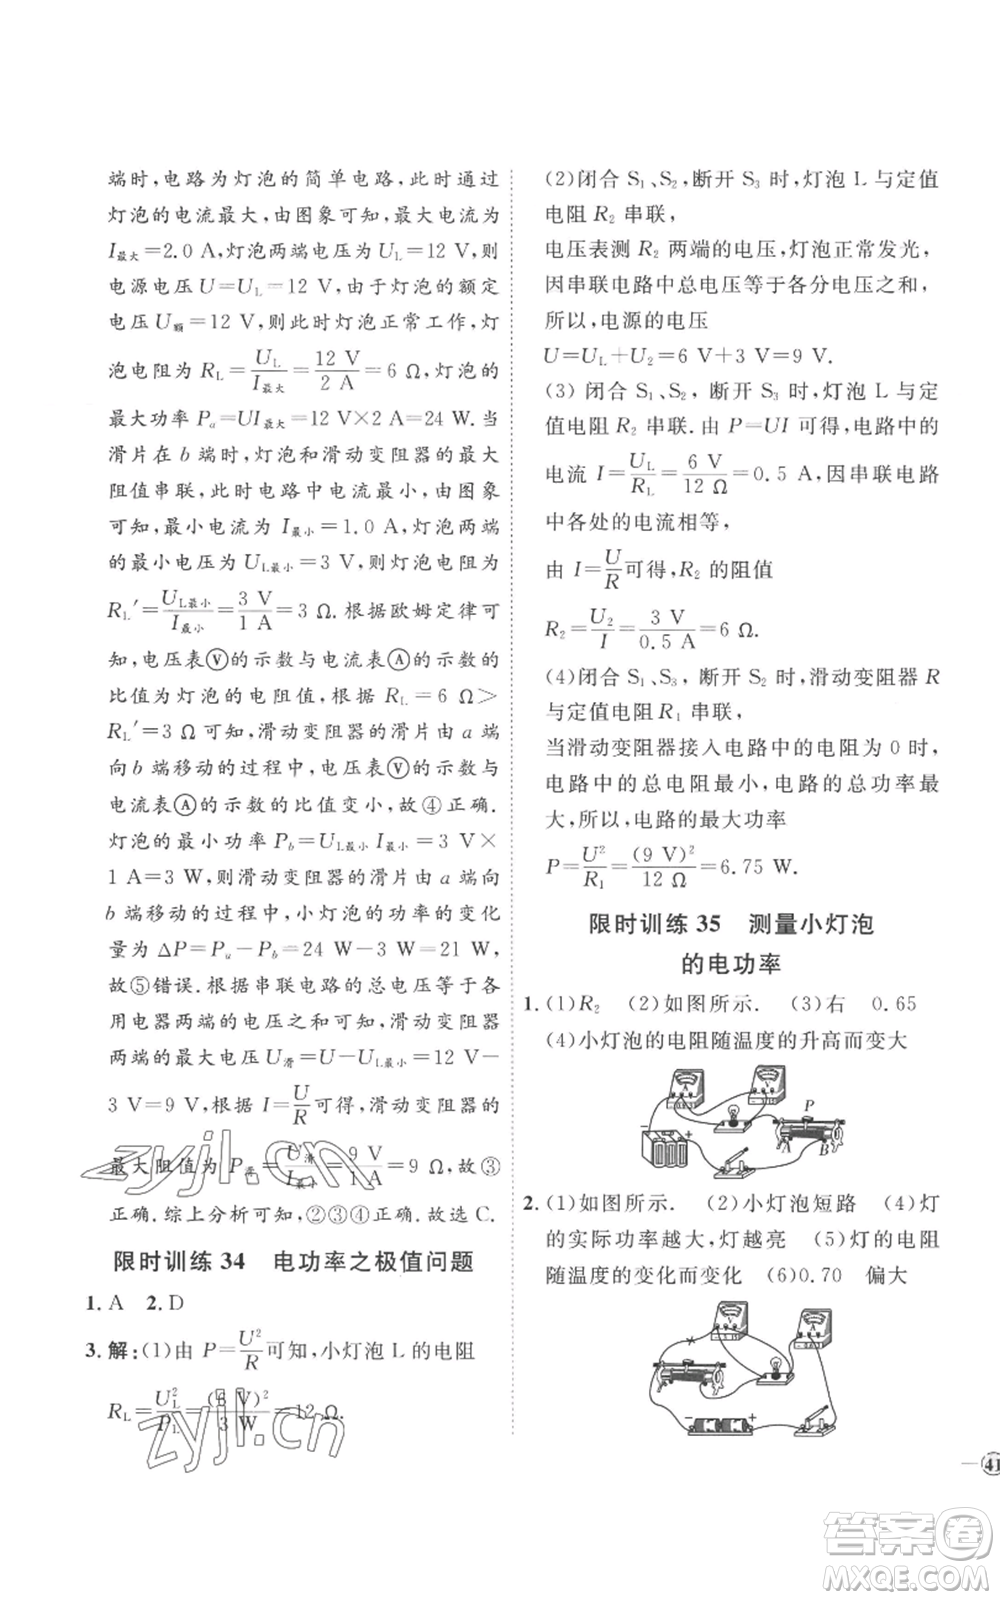 端时,电路为灯泡的简单电路,此时通过
灯泡的电流最大,由图象可知,最大电流为
I最大=2.0 A,灯泡两端电压为 UL=12 V,则
电源电压 U=UL=12 V,由于灯泡的额定
电压 U额=12 V,则此时灯泡正常工作,灯
泡电阻为 RL=UL/I最大=12 V/2 A=6 Ω,灯泡的
最大功率 Pa=UI最大=12 V×2 A=24 W.当
滑片在 b 端时,灯泡和滑动变阻器的最大
阻值串联,此时电路中电流最小,由图象
可知,最小电流为 I最小=1.0 A,灯泡两端
的最小电压为 UL最小=3 V,则灯泡电阻为
RL′=UL最小/I最小=3 V/1 A=3 Ω.根据欧姆定律可
知,电压表Ⓥ的示数与电流表Ⓐ的示数的
比值为灯泡的电阻值,根据 RL=6 Ω>
RL′=3 Ω可知,滑动变阻器的滑片由 a 端
向 b 端移动的过程中,电压表Ⓥ的示数与
电流表Ⓐ的示数的比值变小,故④正确.
灯泡的最小功率 Pb=UL最小 I最小=3 V×
1 A=3 W,则滑动变阻器的滑片由 a 端向
b 端移动的过程中,小灯泡的功率的变化
量为 ΔP=Pa-Pb=24 W-3 W=21 W,
故⑤错误.根据串联电路的总电压等于各
用电器两端的电压之和可知,滑动变阻器
两端的最大电压 U滑=U-UL最小=12 V-
3 V=9 V,根据 I=U/R可得,滑动变阻器的
最大阻值为 R滑=U滑/I最小=9 V/1 A=9 Ω,故③
正确.综上分析可知,②③④正确.故选 C.
限时训练 34 电功率之极值问题
1. A 2. D
3. 解:(1)由 P=U²/R可知,小灯泡 L 的电阻
RL=UL²/PL=(6 V)²/3 W=12 Ω.
(2)闭合 S1、S2,断开 S3 时,灯泡 L 与定值
电阻 R2 串联,
电压表测 R2 两端的电压,灯泡正常发光,
因串联电路中总电压等于各分电压之和,
所以,电源的电压
U=UL+U2=6 V+3 V=9 V.
(3) 闭合 S1、S2,断开 S3 时,灯泡 L 与定
值电阻 R2 串联.由 P=UI 可得,电路中的
电流 I=UL/RL=6 V/12 Ω=0.5 A,因串联电路
中各处的电流相等,
由 I=U/R可得,R2 的阻值
R2=U2/I=3 V/0.5 A=6 Ω.
(4)闭合 S1、S3,断开 S2 时,滑动变阻器 R
与定值电阻R1 串联,
当滑动变阻器接入电路中的电阻为 0 时,
电路中的总电阻最小,电路的总功率最
大,所以,电路的最大功率
P=U²/R1=(9 V)²/12 Ω=6.75 W.
限时训练 35 测量小灯泡
的电功率
1. (1)R2 (2)如图所示. (3)右 0.65
(4)小灯泡的电阻随温度的升高而变大
P
A B
2. (1)如图所示. (2)小灯泡短路 (4)灯
的实际功率越大,灯越亮 (5)灯的电阻
随温度的变化而变化 (6)0.70 偏大
41
zyjl.cn
zyjl.cn
答案卷
MXQE.COM